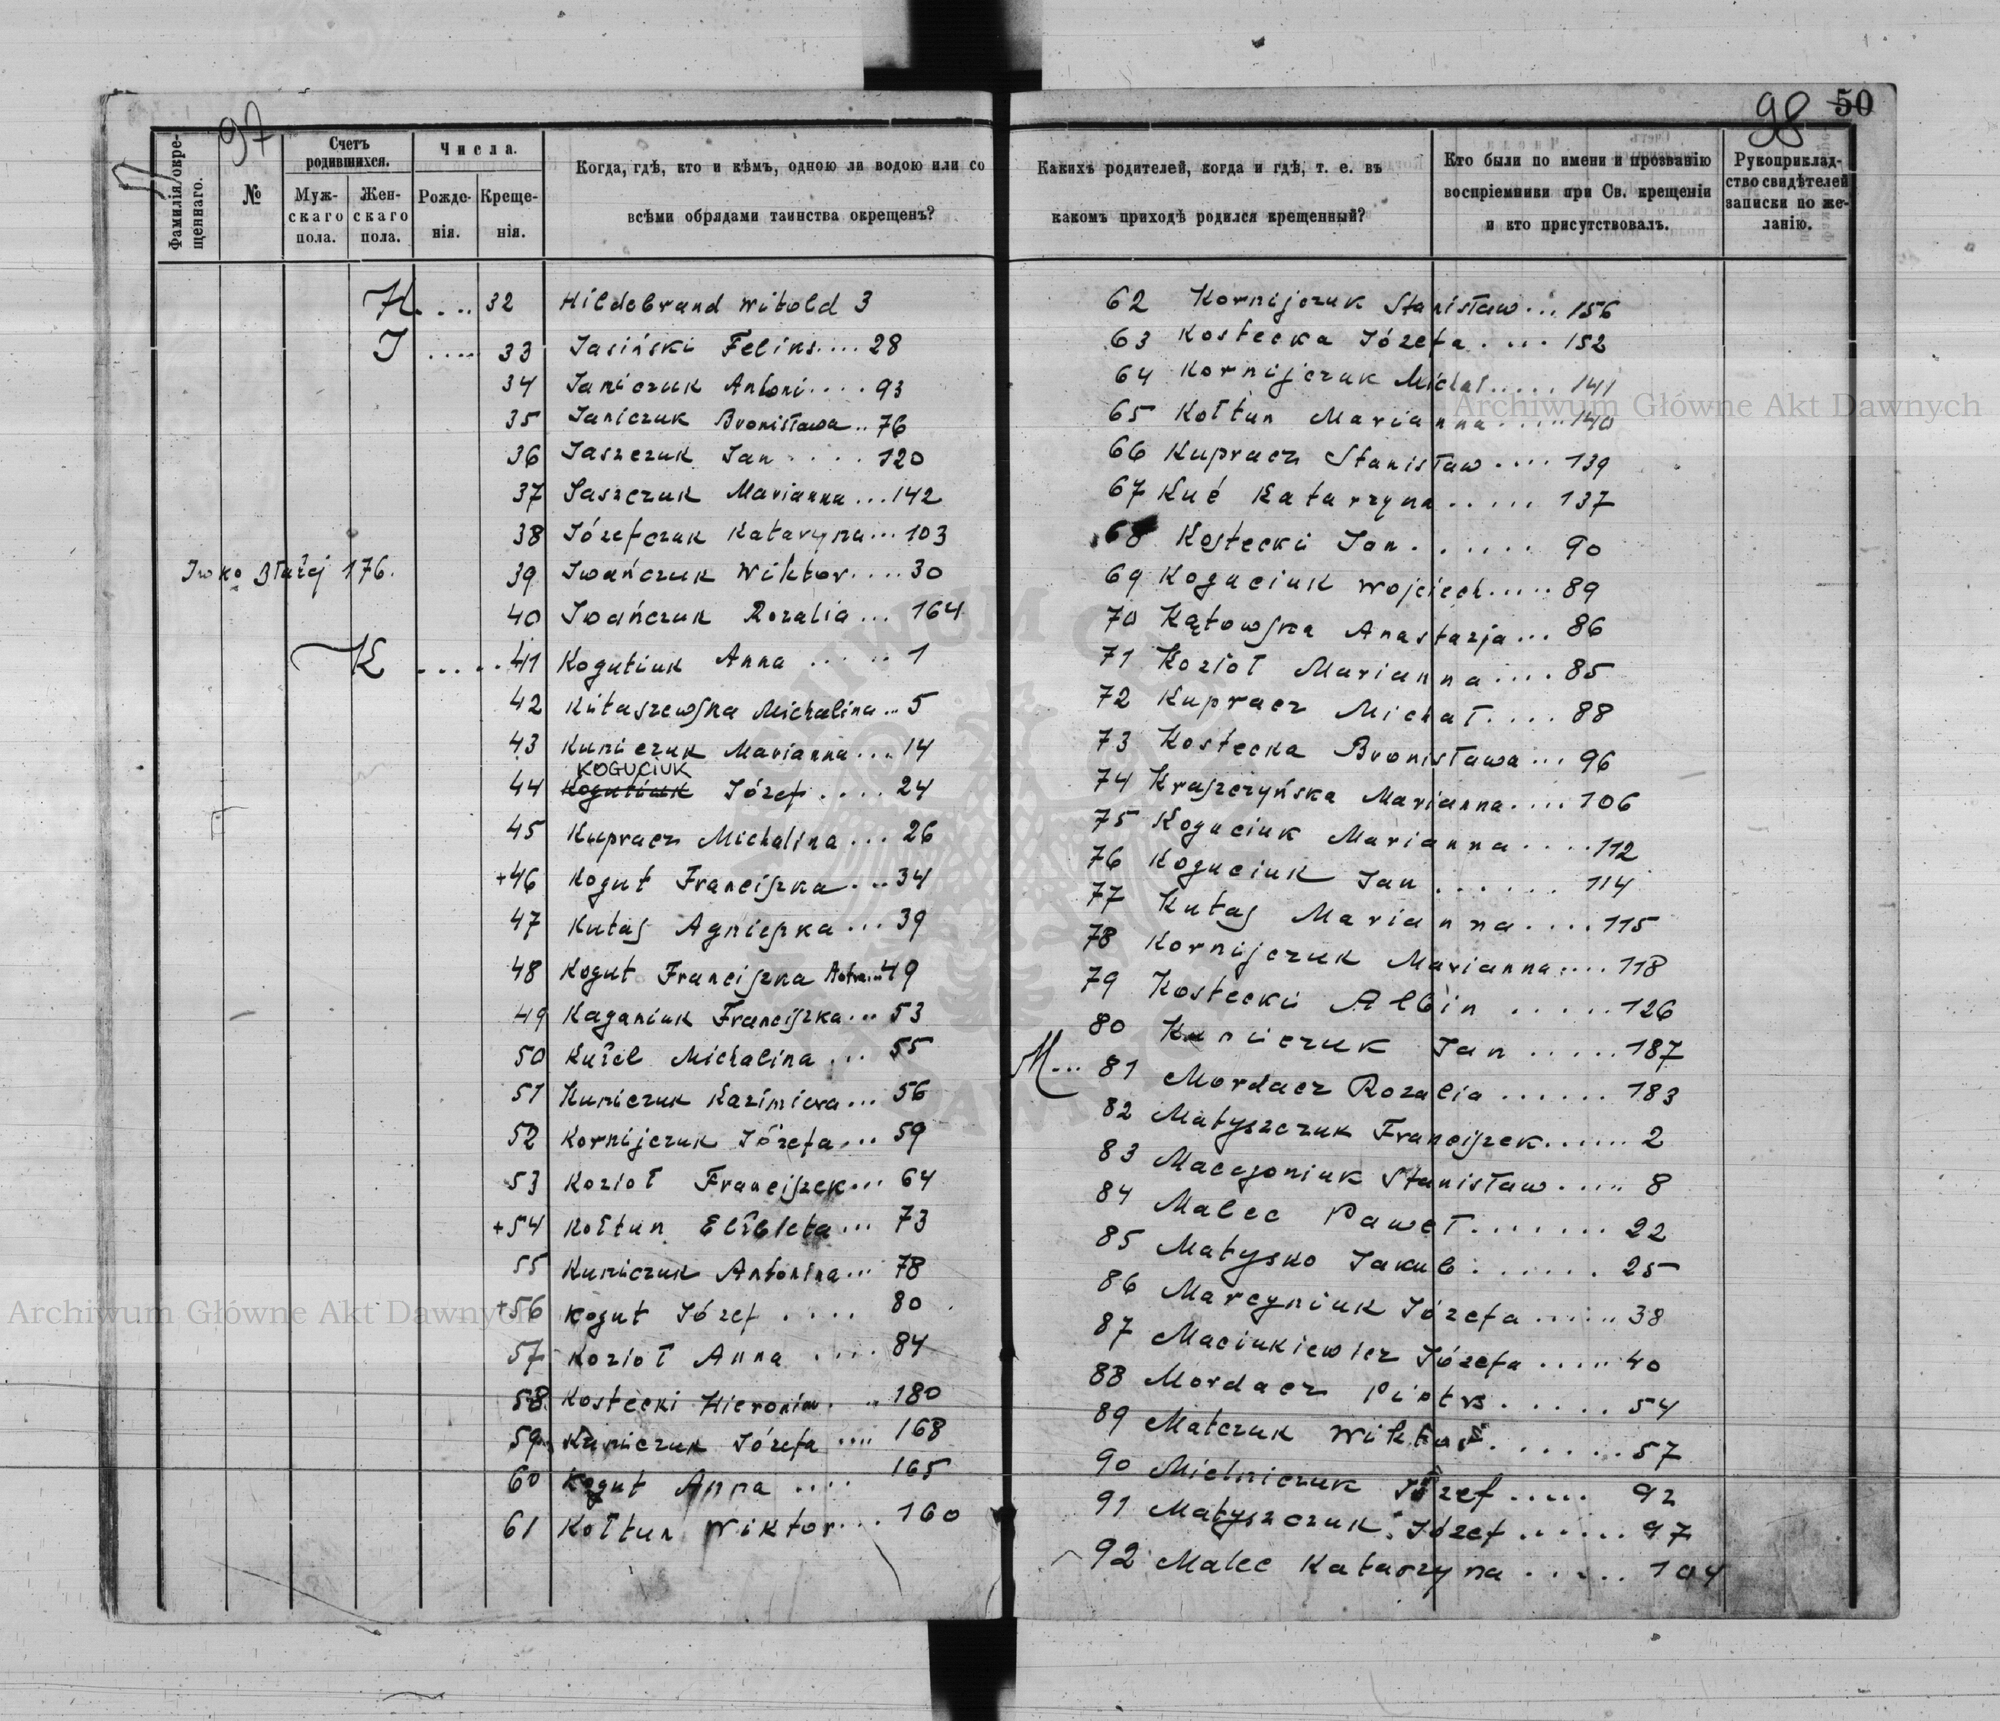 97
Фамилія окре-
щеннаго.
№
Счетъ
родившихся.
Муж-
скаго
пола.
Жен-
скаго
пола.
Числа.
Рожде-
нія.
Креще-
нія.
Когда, гдѣ, кто и кѣмъ, одною ли водою или со
всѣми обрядами таинства окрещенъ?
H .... 32 Hildebrand Witold 3
I ..... 33 Jasiński Felins .... 28
34 Janiczuk Antoni .... 93
35 Janiczuk Bronisława .. 76
36 Jaszczuk Jan .... 120
37 Jaszczuk Marianna ... 142
38 Józefczuk Kataryna ... 103
Iwko Błażej 176.
39 Iwańczuk Wiktor .... 30
40 Iwańczuk Rozalia ... 164
K ..... 41 Kogutiuk Anna ..... 1
42 Kitaszewska Michalina ... 5
43 Kuniczuk Marianna .... 14
KOGUCIUK
44 Kogutiuk Józef .... 24
45 Kupracz Michalina ... 26
+46 Kogut Franciszka .... 34
47 Kutaś Agnieszka ... 39
48 Kogut Franciszka ... 49
49 Kaganiuk Franciszka ... 53
50 Michalina ... 55
51 Kuniczuk Kazimiera ... 56
52 Kornijczuk Józefa ... 59
53 Kozioł Franciszek ... 64
+54 Kołtun Elżbieta ... 73
55 Kuniczuk Antonina ... 78
+56 Kogut Józef .... 80
57 Kozioł Anna .... 84
58 Kostecki Hieronim . .. 180
59 Kuniczuk Józefa .... 168
60 Kogut Anna .... 165
61 Kołtun Wiktor ... 160
98
50
Какихъ родителей, когда и гдѣ, т. е. въ
какомъ приходѣ родился крещенный?
Кто были по имени и прозванію
воспріемники при Св. крещеніи
и кто присутствовалъ.
Рукоприклад-
ство свидѣтелей
записки по же-
ланію.
62 Kornijczuk Stanisław ... 156
63 Kostecka Józefa .... 152
64 Kornijczuk Michał ..... 141
65 Kołtun Marianna ..... 140
66 Kupracz Stanisław .... 139
67 Kuć Katarzyna ..... 137
68 Kostecki Jan ...... 90
69 Koguciuk Wojciech ..... 89
70 Kątowska Anastazja ... 86
71 Kozioł Marianna .... 85
72 Kupracz Michał .... 88
73 Kostecka Bronisława ... 96
74 Kraszczyńska Marianna .... 106
75 Koguciuk Marianna .... 112
76 Koguciuk Jan ...... 114
77 Kutaś Marianna .... 115
78 Kornijczuk Marianna .... 118
79 Kostecki Albin ..... 126
80 Kuniczuk Jan ..... 187
M ... 81 Mordacz Rozalia ...... 183
82 Matyszczuk Franciszek ...... 2
83 Stanisław ..... 8
84 Malec Paweł ....... 22
85 Matysko Jakub ...... 25
86 Marcyniuk Józefa ...... 38
87 Maciukiewicz Józefa ..... 40
88 Mordacz Piotr ..... 54
89 Matczuk Wiktor ...... 57
90 Mielniczuk Józef ..... 92
91 Matyszczuk Józef ...... 97
92 Malec Katarzyna ..... 104
Archiwum Główne Akt Dawnych
Archiwum Główne Akt Dawnych